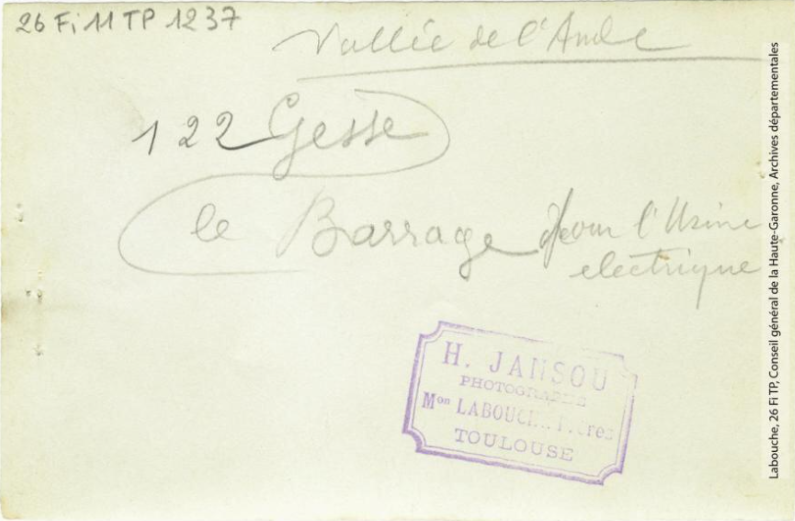 26 Fi 11 TP 1237
Vallée de l'Aude
122 Gesse
le Barrage pour l'Usine
electrique
H. JANSOU
PHOTOGRAPHE
Mon LABOUCHE Frères
TOULOUSE
Labouche, 26 Fi TP, Conseil général de la Haute-Garonne, Archives départementales